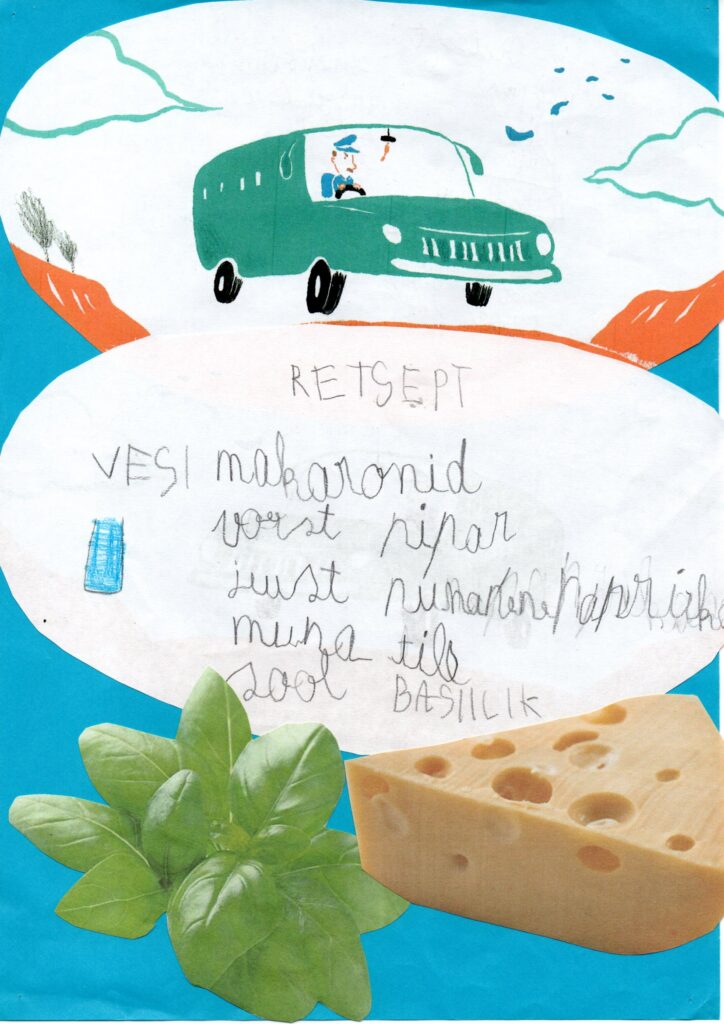 RETSEPT
VESI makaronid
vorst pipar
juust
muna till
sool BASIILIK